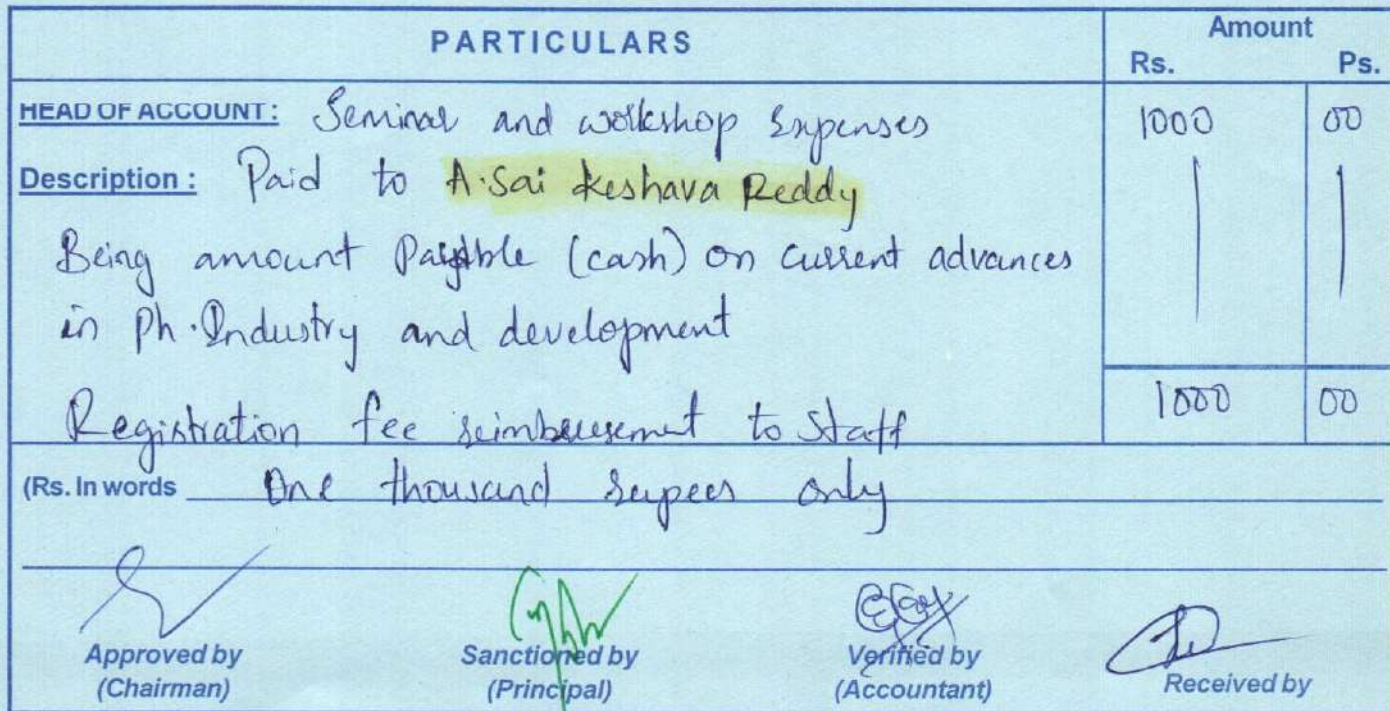 PARTICULARS
Amount
Rs. Ps.
HEAD OF ACCOUNT: Seminar and workshop Expenses 1000 00
Description: Paid to A. Sai Keshava Reddy
Being amount Payable (cash) on current advances
in Ph. Industry and development
Registration fee reimbursement to staff 1000 00
(Rs. In words One thousand rupees only
Approved by Sanctioned by Verified by Received by
(Chairman) (Principal) (Accountant)